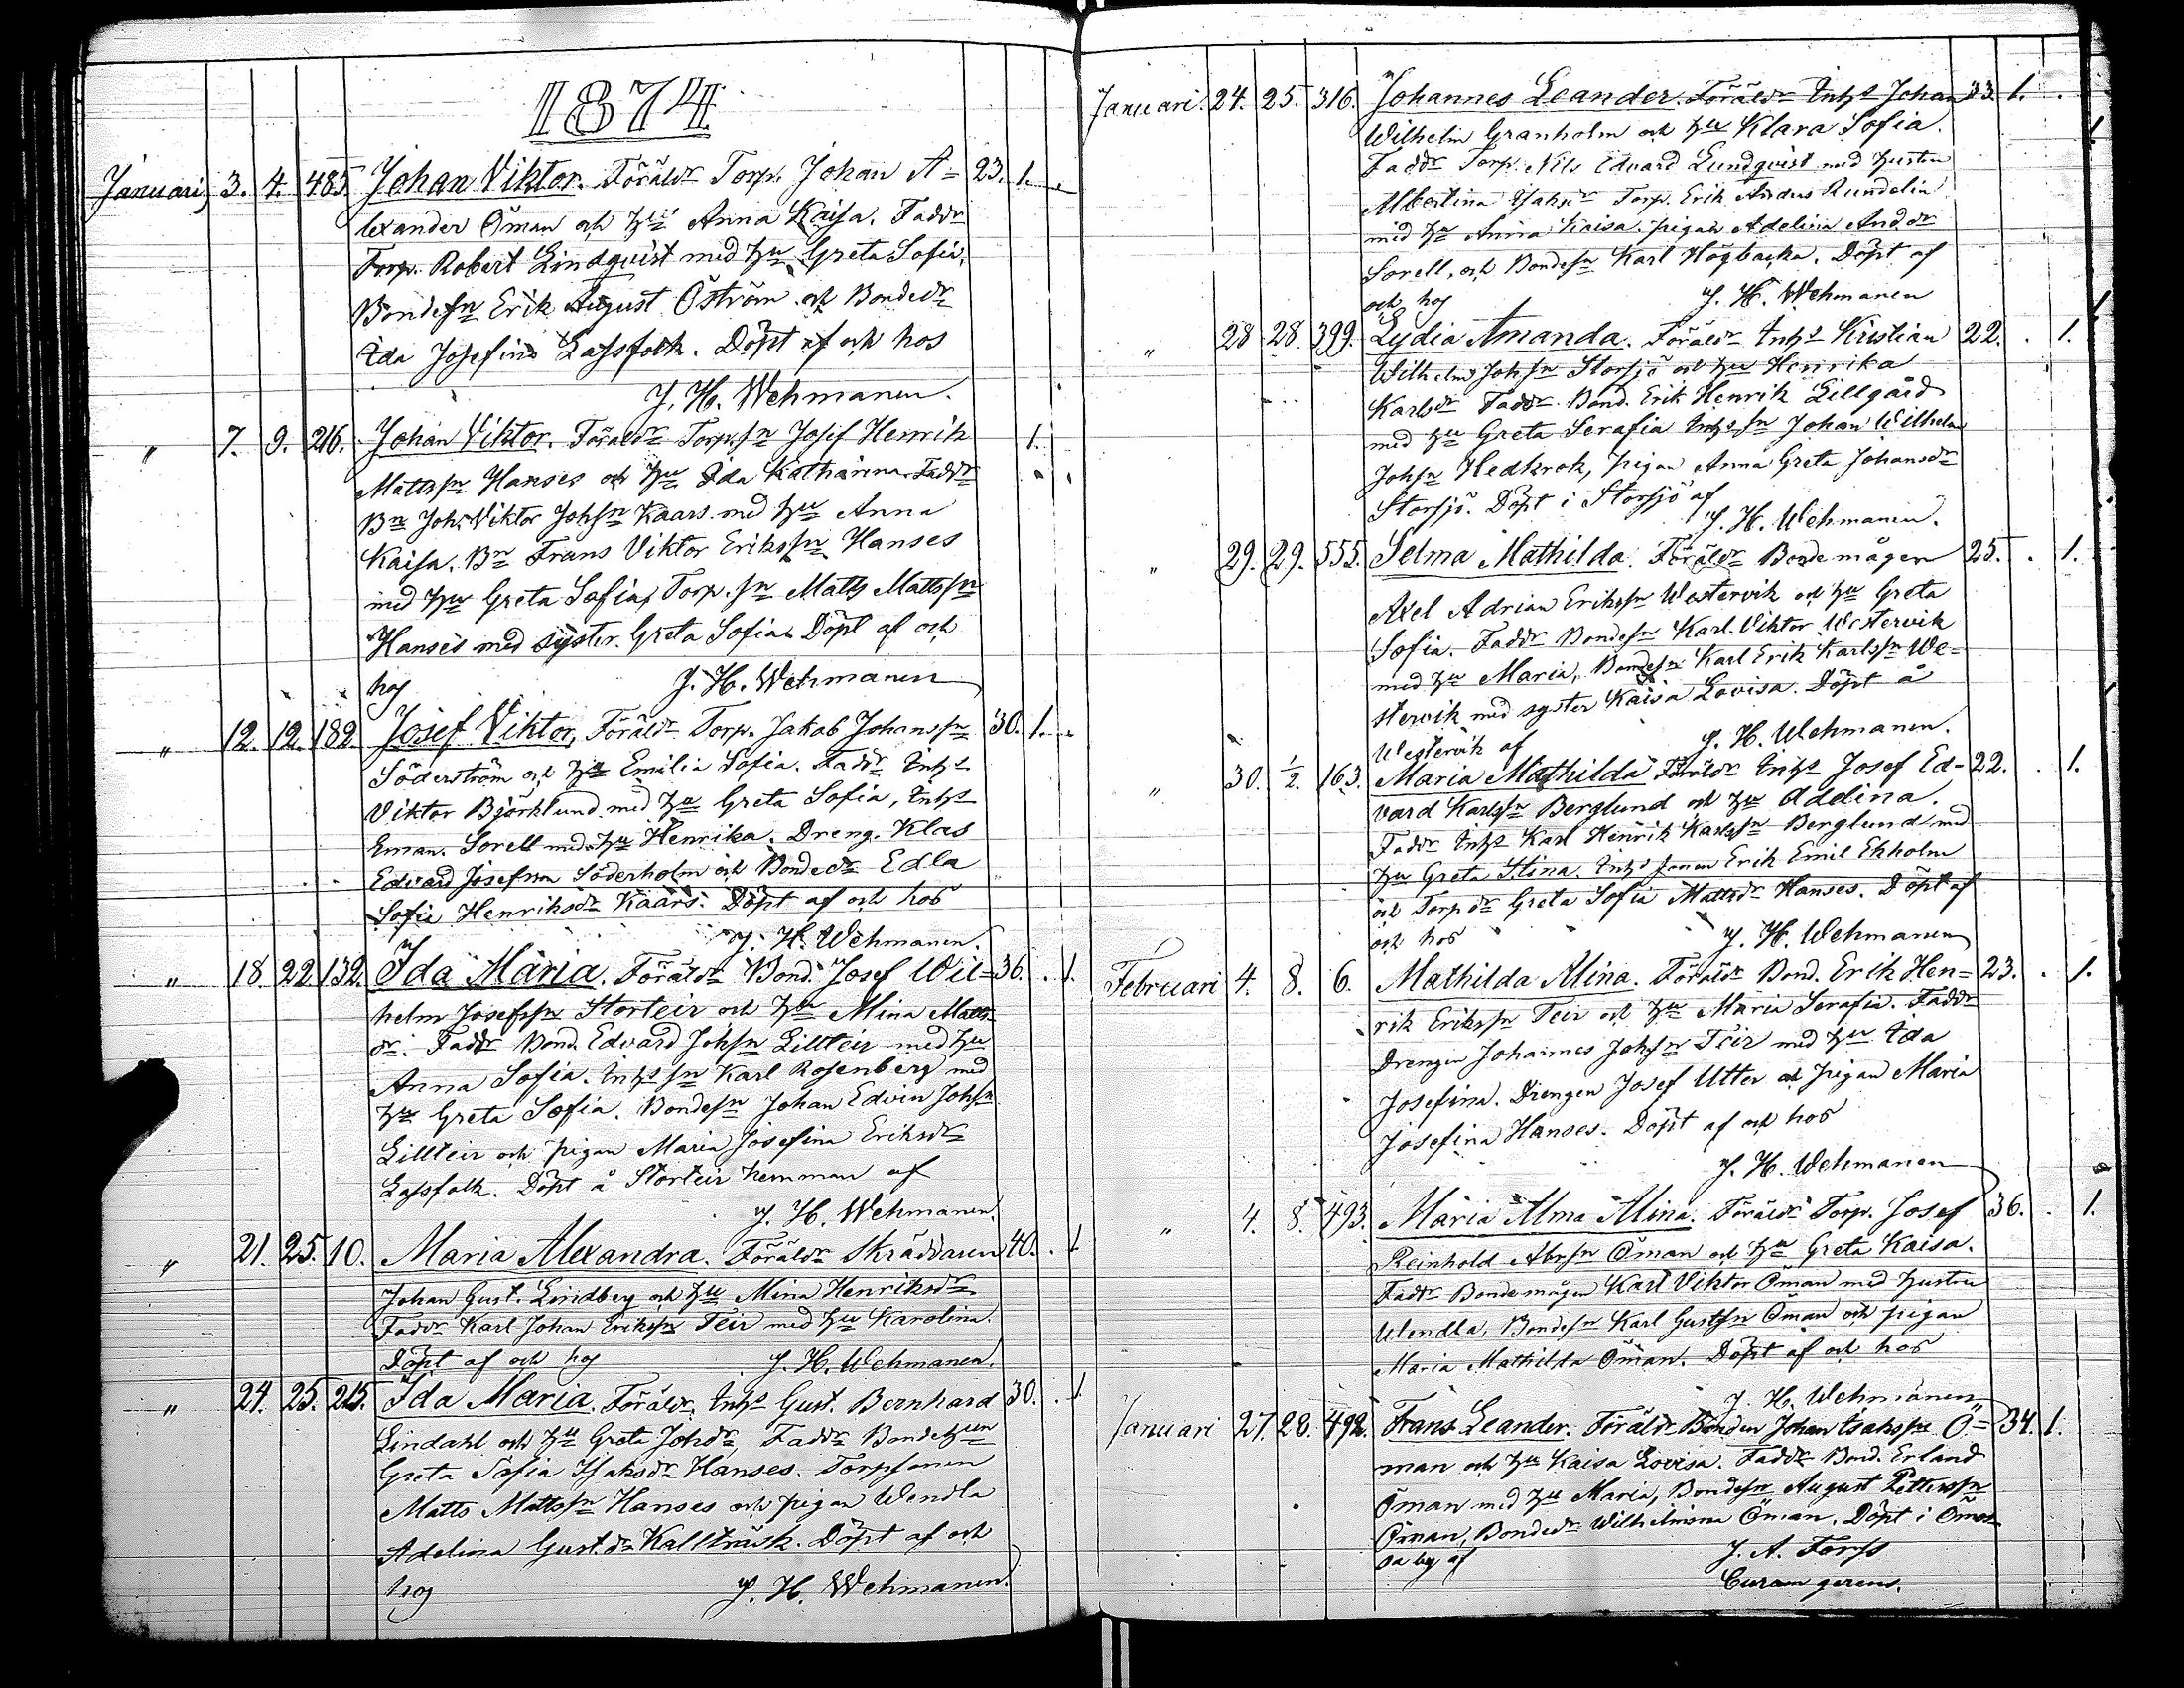 1874
Januari, 3. 4. 485. Johan Viktor. Föräldr Torp. Johan A= 23. 1.
lexander Öman och hu Anna Kaisa. Faddr
Torp. Robert Lindqvist med hu Greta Sofia,
Bondesn Erik August Öström och Bondedr
Ida Josefina Lassfolk. Döpt af och hos
J. H. Wehmanen.
" 7. 9. 216. Johan Viktor. Föräldr Torp.sn Josef Henrik 1.
Mattssn Hanses och hu Ida Katharina. Faddr
Bn Joh. Viktor Johsn Kaars. med hu Anna
Kaisa. Bn Frans Viktor Erikssn Hanses
med hu Greta Sofia, Torp.sn Matts Mattssn
Hanses med syster. Greta Sofia. Döpt af och
hos J. H. Wehmanen
" 12. 12. 182. Josef Viktor, Föräldr Torp. Jakob Johanssn 30. 1.
Söderström och hu Emilia Sofia. Faddr Inhs
Viktor Björklund med hu Greta Sofia, Inhs
Eman. Sorell med hu Henrika. Dreng. Klas
Edvard Josefsson Söderholm och Bondedr Edla
Sofia Henriksdr Kaars. Döpt af och hos
J. H. Wehmanen.
" 18. 22. 132. Ida Maria. Föräldr Bond. Josef Wil= 36. 1.
helm Josefssn Storteir och hu Mina Matts
dr. Faddr Bond. Edvard Johsn Lillteir med hu
Anna Sofia. Inhs sn Karl Rosenberg med
hu Greta Sofia. Bondesn Johan Edvin Johsn
Lillteir och pigan Maria Josefina Eriksdr
Lassfolk. Döpt å Storteir hemman af
J. H. Wehmanen.
" 21. 25. 10. Maria Alexandra. Föräldr Skräddaren 40. 1
Johan Gust. Lindberg och hu Mina Henriksdr
Faddr Karl Johan Erikssn Teir med hu Karolina.
Döpt af och hos J. H. Wehmanen.
" 24. 25. 215. Ida Maria. Föräldr. Inhs Gust. Bernhard 30. 1
Lindahl och hu Greta Johdr, Faddr Bondehun
Greta Sofia Isaksdr Hanses. Torpsonen
Matts Mattssn Hanses och pigan Wendla
Adelina Gust.dr Kallträsk. Döpt af och
hos J. H. Wehmanen.
Januari. 24. 25. 316. Johannes Leander. Föräldr Inhs Johan 33. 1.
Wilhelm Granholm och hu Klara Sofia.
Faddr Torp. Nils Edvard Lundqvist med hustru
Albertina Isaksdr Torp. Erik Anders Rundelin
med hu Anna Kaisa. pigan Adelina Anddr
Sorell, och Bondesn Karl Högbacka. Döpt af
och hos J. H. Wehmanen
" 28 28. 399. Lydia Amanda. Föräldr Inhs Kristian 22. 1.
Wilhelm Johsn Storsjö och hu Henrika
Karlsdr Faddr Bond. Erik Henrik Lillgård
med hu Greta Serafia Inhs sn Johan Wilhelm
Johsn Hedkrok, pigan Anna Greta Johansdr
Storsjö. Döpt i Storsjö af
J. H. Wehmanen.
" 29. 29. 555. Selma Mathilda. Föräldr Bondemågen 25. 1.
Axel Adrian Erikssn Westervik och hu Greta
Sofia. Faddr Bondesn Karl. Viktor Westervik
med hu Maria, Bondesn Karl Erik Karlssn We=
stervik med syster Kaisa Lovisa. Döpt å
Westervik af J. H. Wehmanen.
" 30. 1/2. 163. Maria Mathilda Föräldr Inhs Josef Ed= 22. 1.
vard Karlssn Berglund och hu Adelina.
Faddr Inhs Karl Henrik Karlssn Berglund med
hu Greta Stina. Inhs sonen Erik Emil Ekholm
och Torpdr Greta Sofia Mattsdr Hanses. Döpt af
och hos J. H. Wehmanen
Februari 4. 8. 6. Mathilda Mina. Föräldr Bond. Erik Hen= 23. 1.
rik Erikssn Teir och hu Maria Serafia. Faddr
Drengen Johannes Johsn Teir med hu Ida
Josefina. Drengen Josef Utter och pigan Maria
Josefina Hanses. Döpt af och hos
J. H. Wehmanen
" 4. 8. 493. Maria Alma Mina. Föräldr Torp. Josef 36. 1.
Reinhold Abrsn Öman och hu Greta Kaisa.
Faddr Bondemågen Karl Viktor Öman med hustru
Wendla, Bondesn Karl Gustsn Öman och pigan
Maria Mathilda Öman. Döpt af och hos
J. H. Wehmanen
Januari 27. 28. 492. Frans Leander. Föräldr Bonden Johan Isakssn Ö= 34. 1.
man och hu Kaisa Lovisa. Faddr Bond. Erland
Öman med hu Maria, Bondesn August Petterssn
Öman, Bondedr Wilhelmina Öman. Döpt i Ömos=
sa by af J. A. Forss
Curam gerens.